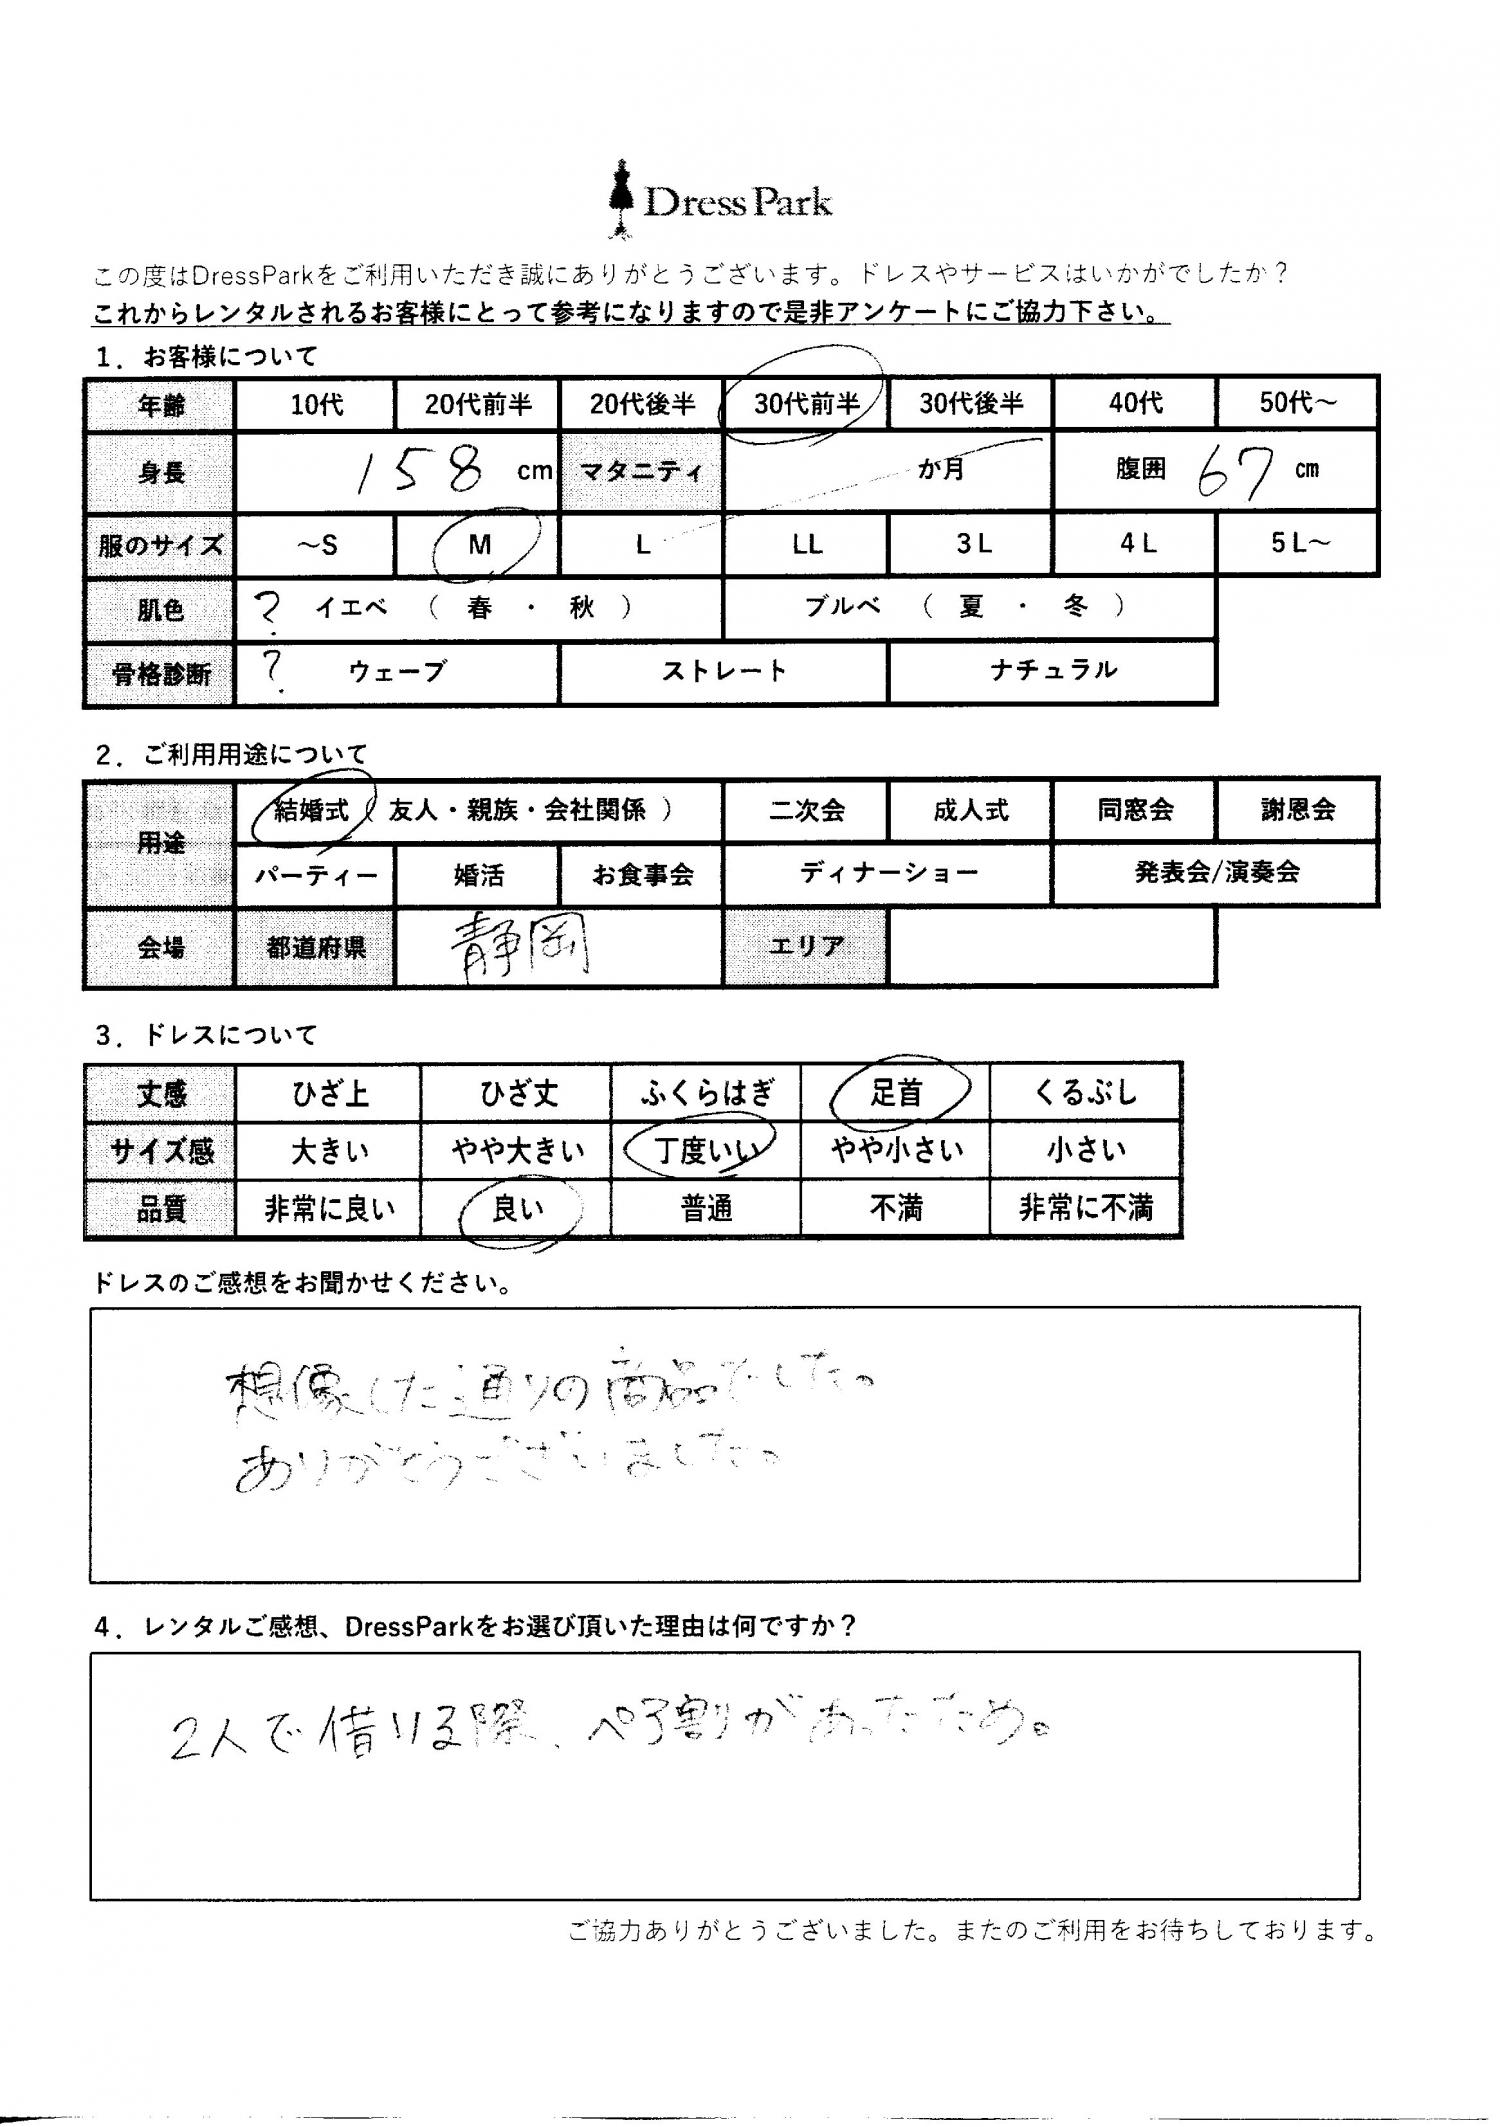 Dress Park
この度はDressParkをご利用いただき誠にありがとうございます。ドレスやサービスはいかがでしたか?
これからレンタルされるお客様にとって参考になりますので是非アンケートにご協力下さい。
1. お客様について
年齢 10代 20代前半 20代後半 30代前半 30代後半 40代 50代~
身長 158 cm マタニティ か月 腹囲 67 cm
服のサイズ ~S M L LL 3L 4L 5L~
肌色 ? イエベ ( 春 ・ 秋 ) ブルベ ( 夏 ・ 冬 )
骨格診断 ? ウェーブ ストレート ナチュラル
2. ご利用用途について
用途 結婚式 ( 友人・親族・会社関係 ) 二次会 成人式 同窓会 謝恩会
パーティー 婚活 お食事会 ディナーショー 発表会/演奏会
会場 都道府県 静岡 エリア
3. ドレスについて
丈感 ひざ上 ひざ丈 ふくらはぎ 足首 くるぶし
サイズ感 大きい やや大きい 丁度いい やや小さい 小さい
品質 非常に良い 良い 普通 不満 非常に不満
ドレスのご感想をお聞かせください。
想像した通りの商品でした。
ありがとうございました。
4. レンタルご感想、DressParkをお選び頂いた理由は何ですか?
2人で借りる際、ペア割があったため。
ご協力ありがとうございました。またのご利用をお待ちしております。